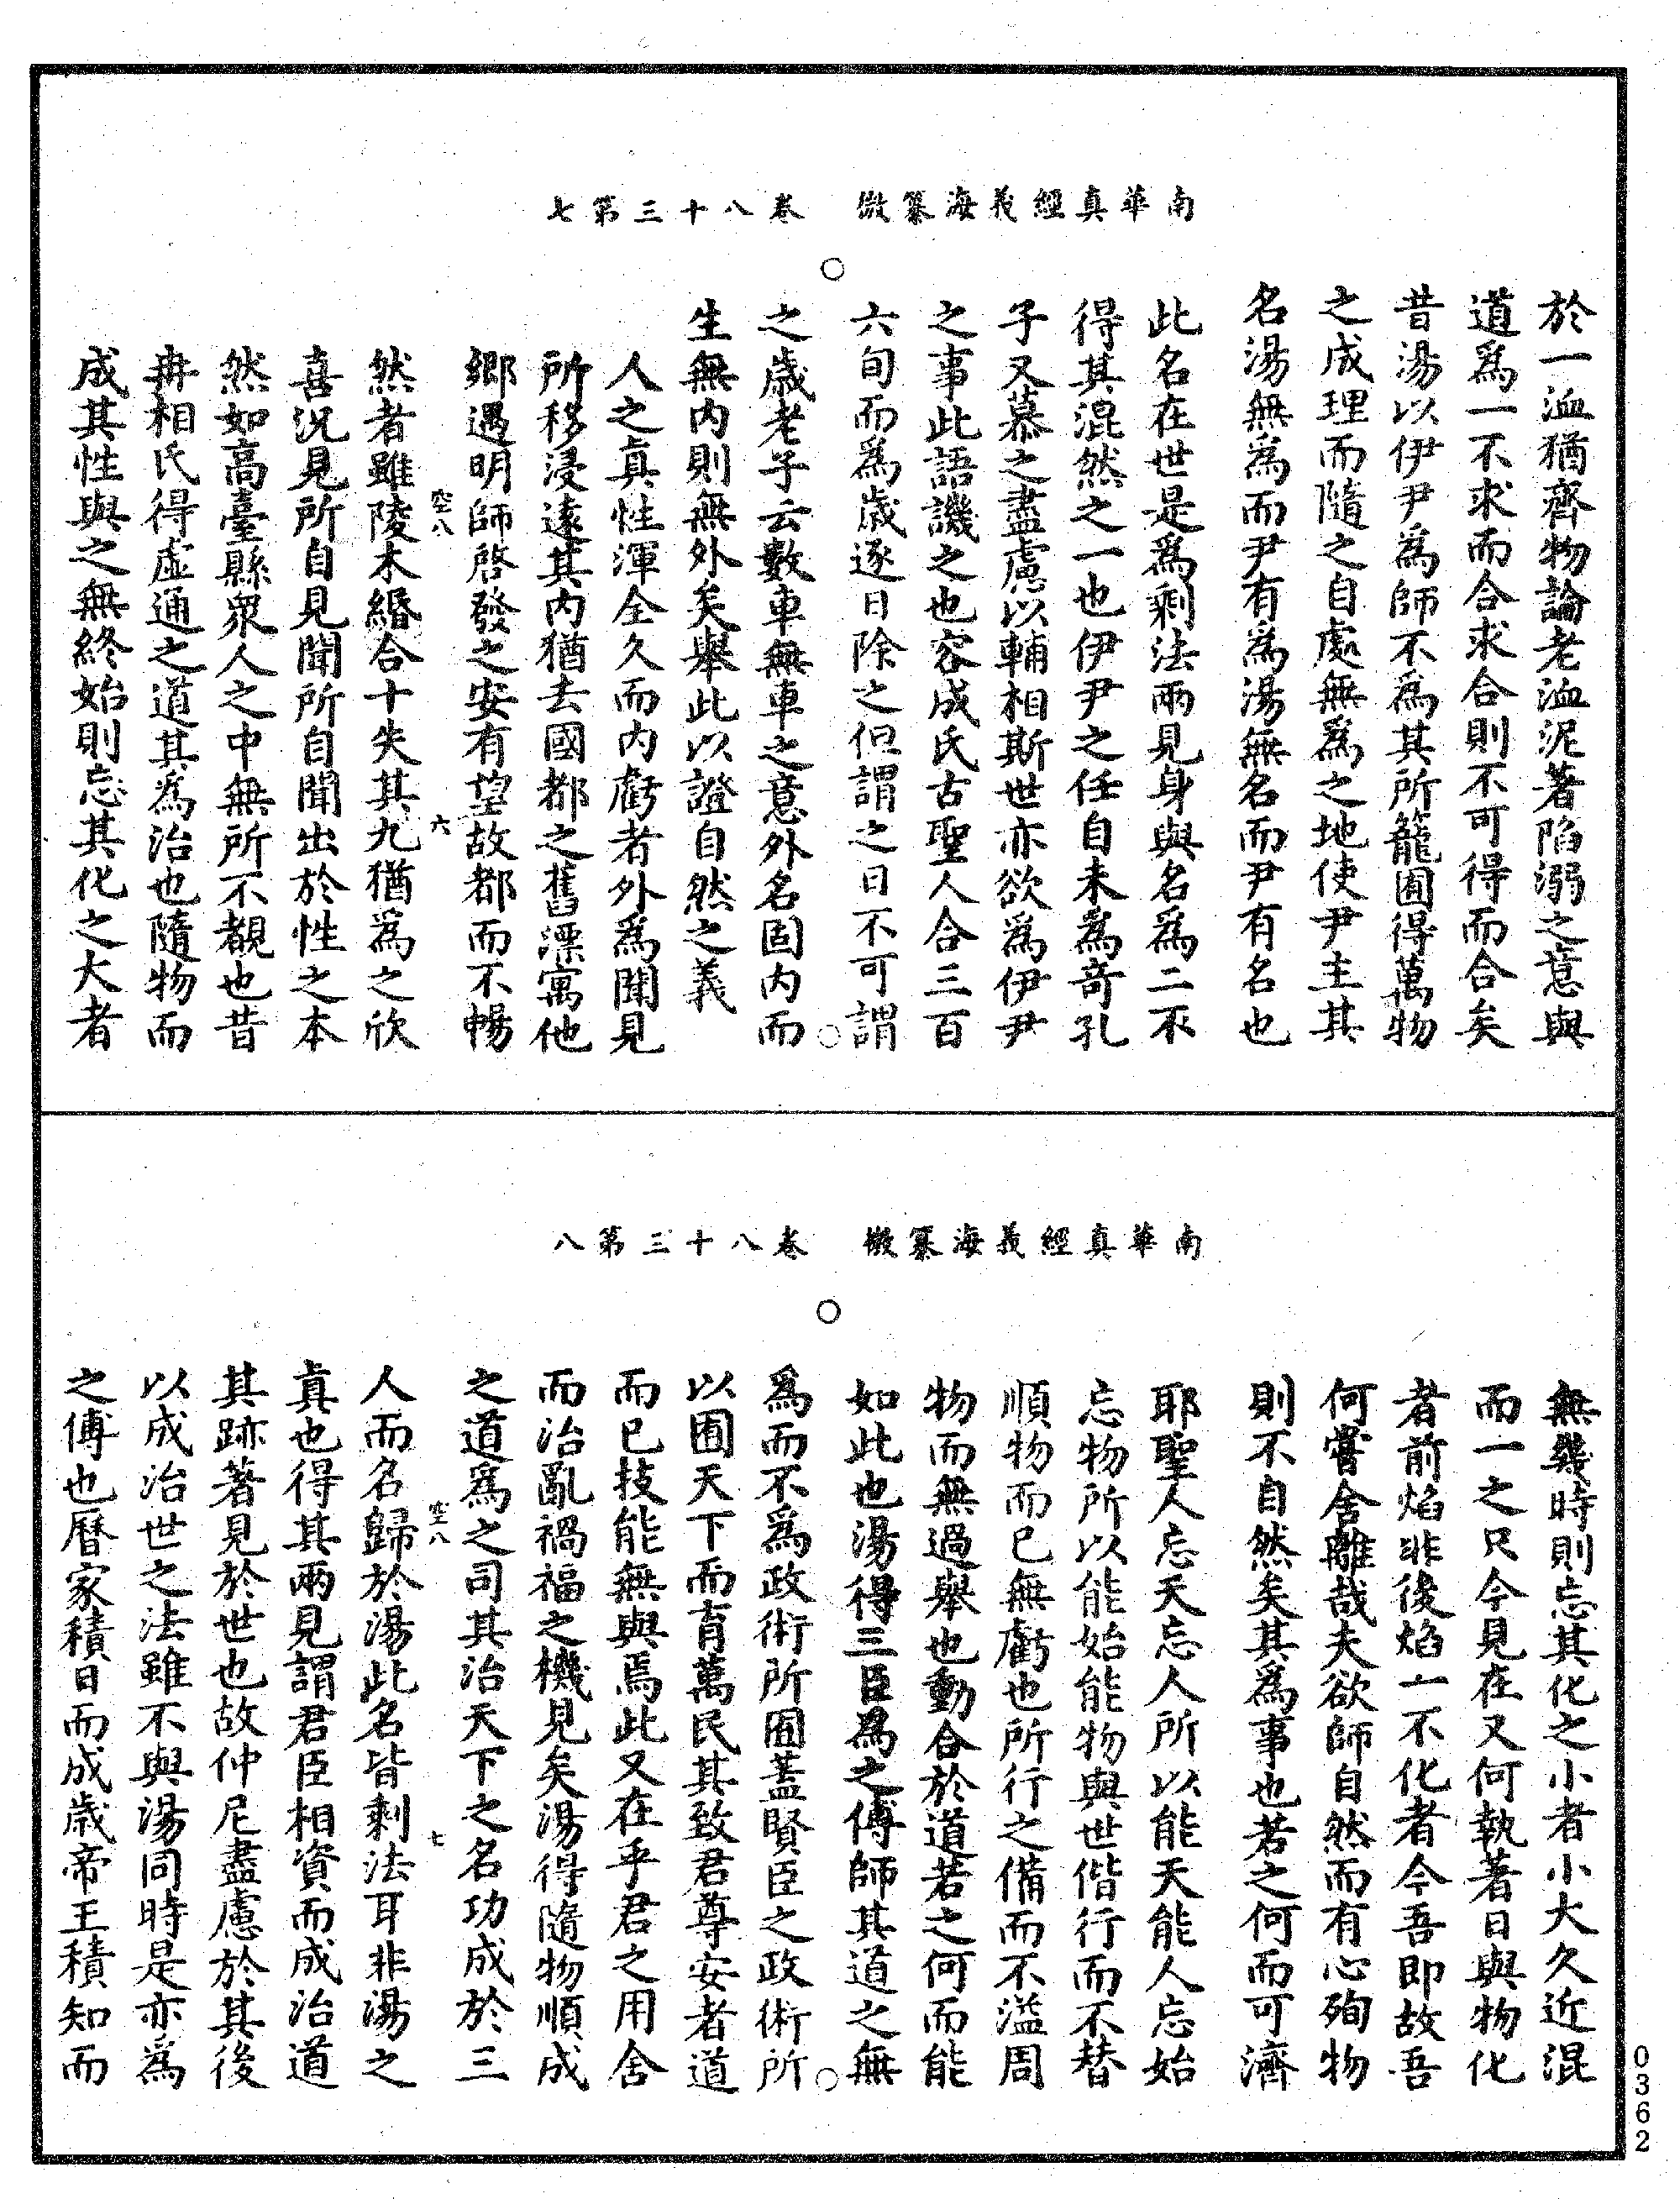 南華真經義海纂微　卷八十三第七
於一洫猶齊物論老洫泥著陷溺之意與
道為一不求而合求合則不可得而合矣
昔湯以伊尹為師不為其所籠囿得萬物
之成理而隨之自處無為之地使尹主其
名湯無為而尹有為湯無名而尹有名也
此名在世是為剩法兩見身與名為二不
得其混然之一也伊尹之任自未為奇孔
子又慕之盡慮以輔相斯世亦欲為伊尹
之事此語譏之也容成氏古聖人合三百
六旬而為歲逐日除之但謂之日不可謂
之歲老子云數車無車之意外名固內而
生無內則無外矣舉此以證自然之義
人之真性渾全久而內虧者外為聞見
所移浸遠其內猶去國都之舊漂寓他
鄉遇明師啓發之安有望故都而不暢
空八　六
然者雖陵木緡合十失其九猶為之欣
喜況見所自見聞所自聞出於性之本
然如高臺縣衆人之中無所不覩也昔
冉相氏得虛通之道其為治也隨物而
成其性與之無終始則忘其化之大者
南華真經義海纂微　卷八十三第八
無幾時則忘其化之小者小大久近混
而一之只今見在又何執著日與物化
者前焰非後焰一不化者今吾即故吾
何嘗舍離哉夫欲師自然而有心殉物
則不自然矣其為事也若之何而可濟
耶聖人忘天忘人所以能天能人忘始
忘物所以能始能物與世偕行而不替
順物而已無虧也所行之備而不溢周
物而無過舉也動合於道若之何而能
如此也湯得三臣為之傅師其道之無
為而不為政術所囿蓋賢臣之政術所
以囿天下而育萬民其致君尊安者道
而已技能無與焉此又在乎君之用舍
而治亂禍福之機見矣湯得隨物順成
之道為之司其治天下之名功成於三
空八　七
人而名歸於湯此名皆剩法耳非湯之
真也得其兩見謂君臣相資而成治道
其跡著見於世也故仲尼盡慮於其後
以成治世之法雖不與湯同時是亦為
之傅也曆家積日而成歲帝王積知而
0362